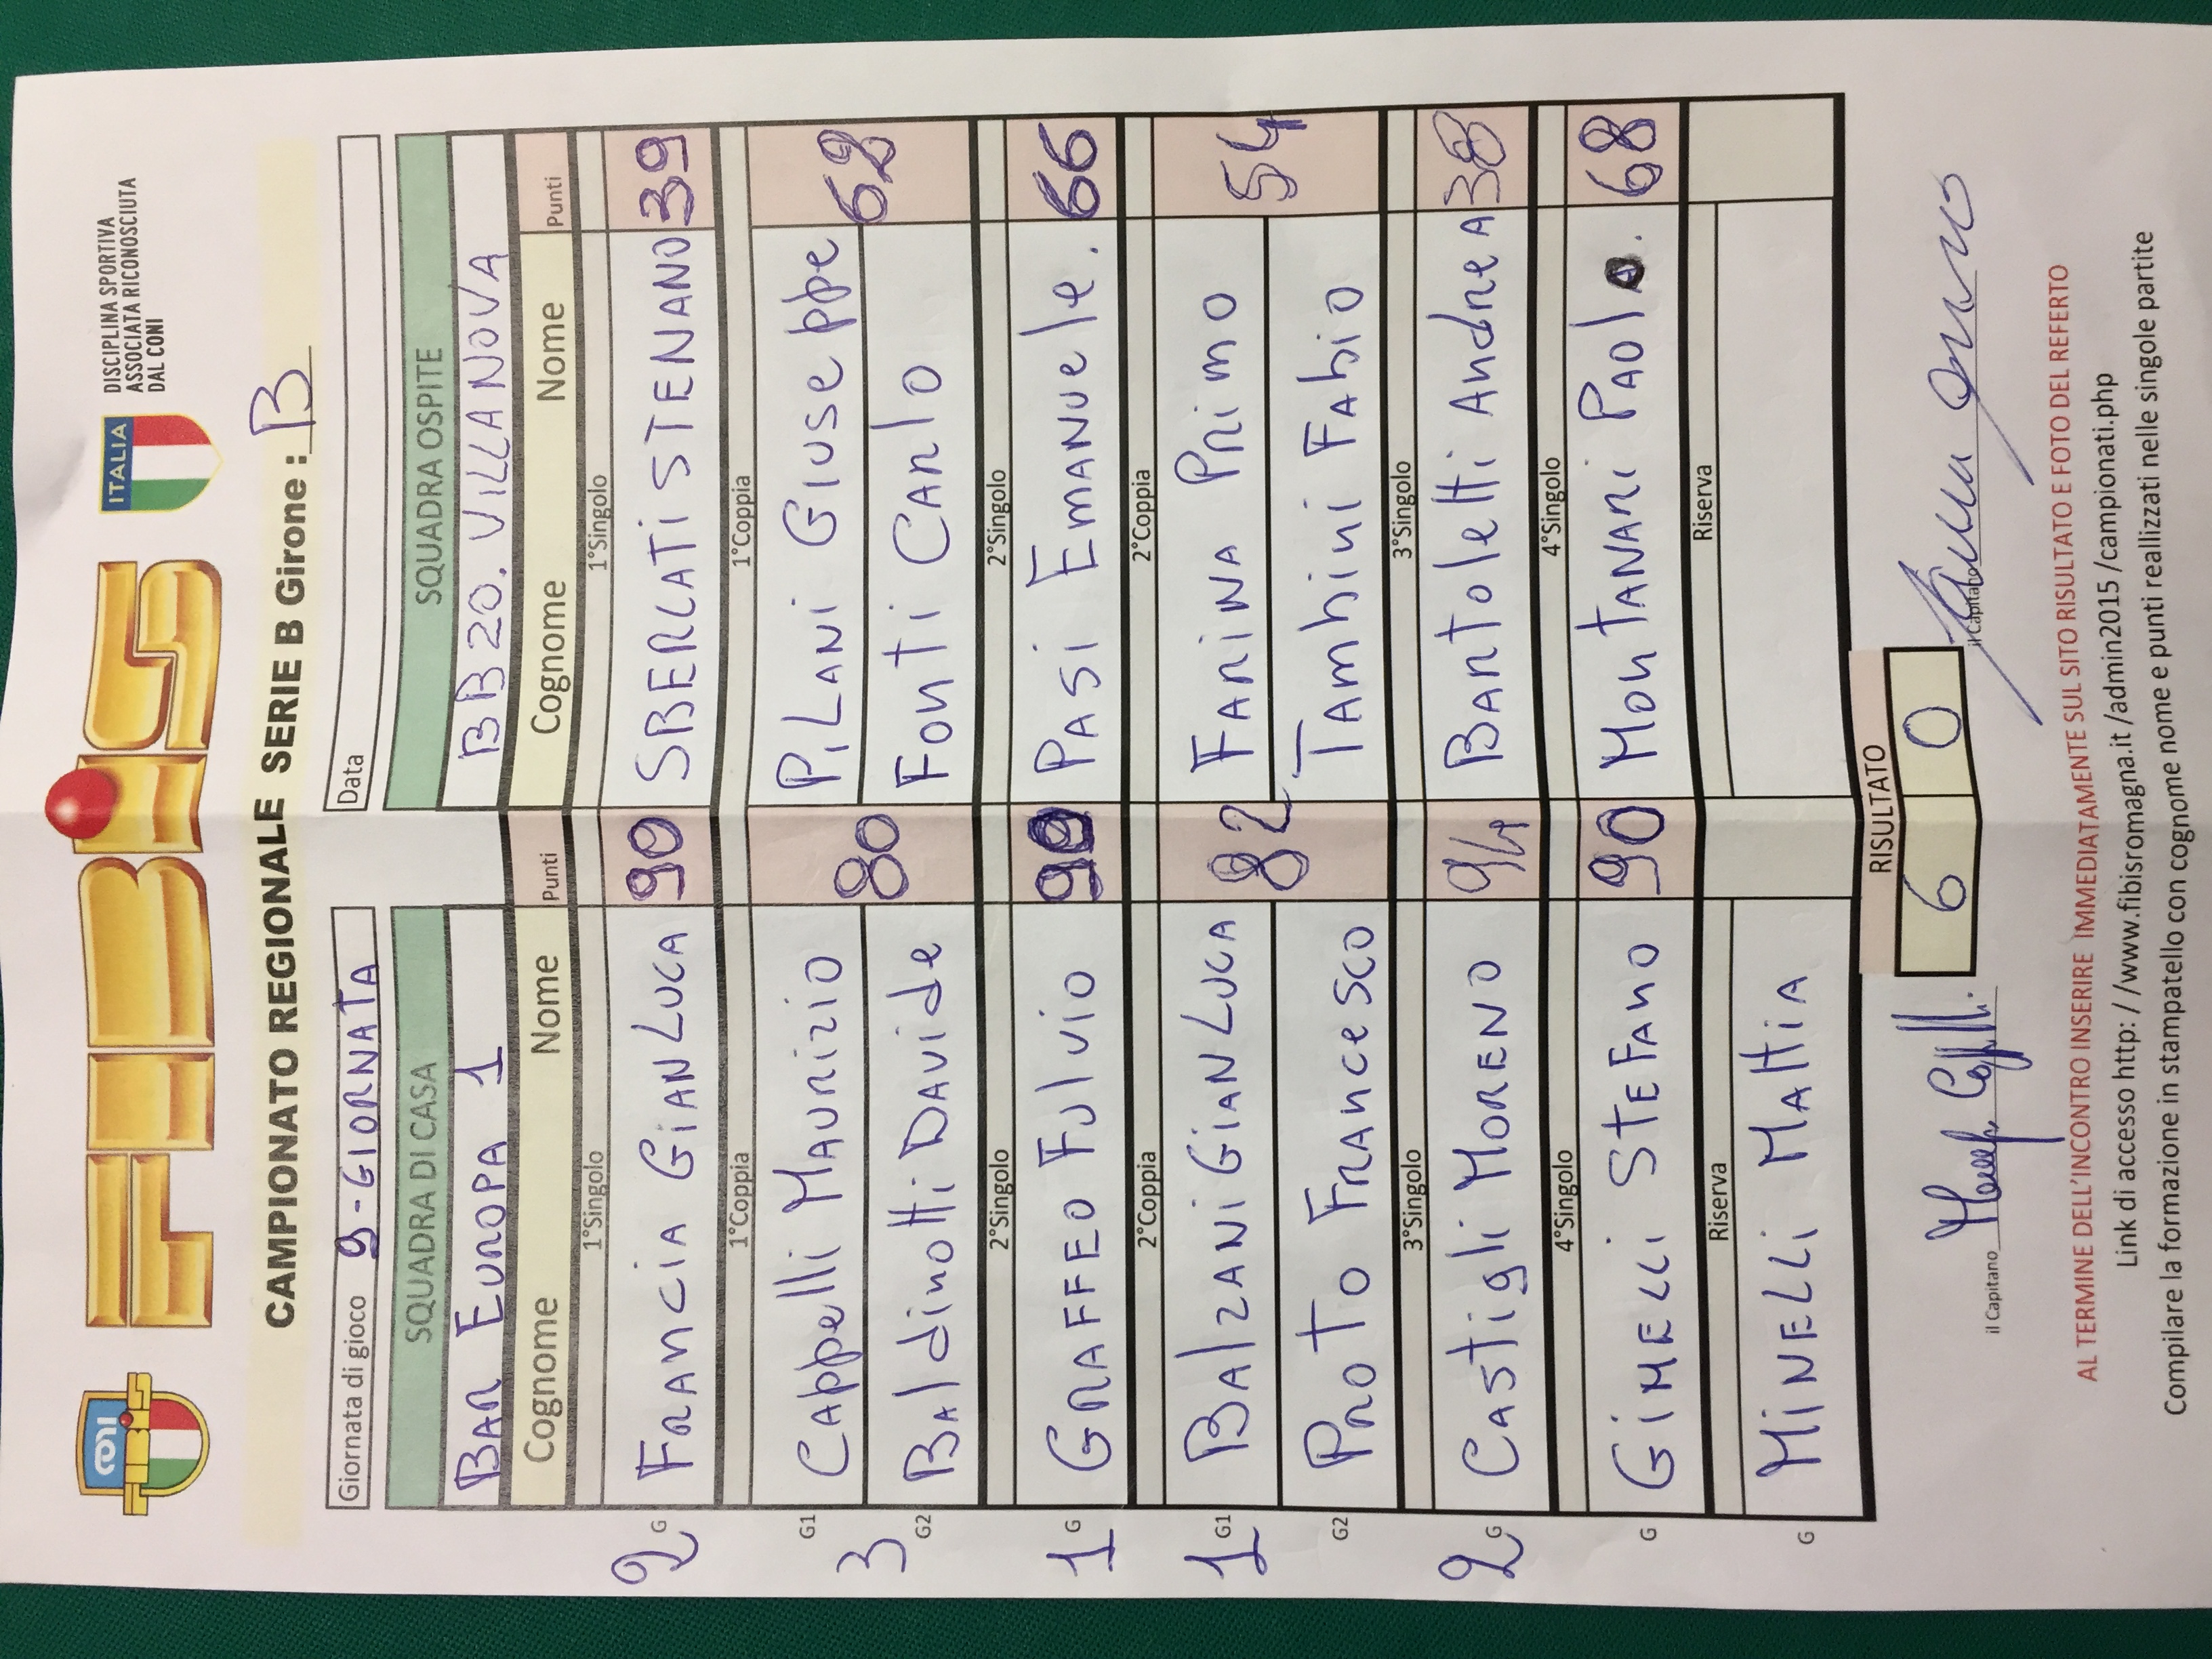 FIBiS
ITALIA
DISCIPLINA SPORTIVA
ASSOCIATA RICONOSCIUTA
DAL CONI
CAMPIONATO REGIONALE SERIE B Girone : B
Giornata di gioco 9-GIORNATA Data
SQUADRA DI CASA SQUADRA OSPITE
BAR EUROPA 1 BB20. VILLANOVA
Cognome Nome Punti Cognome Nome Punti
1°Singolo 1°Singolo
2 G FRANCIA GIANLUCA 90 SBERLATI STENANO 39
1°Coppia 1°Coppia
G1 Cappelli MAURIZIO PiLARI GIUSEPPE
3 80 62
G2 BAldinotti DAVIDE FORTI CARlO
2°Singolo 2°Singolo
1 G GRAFFEO FULVIO PASI EMANUELE. 66
2°Coppia 2°Coppia
1 G1 BALZANI GIANLUCA 82 FARINA PRIMO 54
G2 PROTO FRANCESCO TAMBINI FABIO
3°Singolo 3°Singolo
2 G CASTIGLI MORENO 94 BARTOLETTI ANDREA 38
4°Singolo 4°Singolo
G GIMELLI STEFANO 90 MONTANARI PAOLO. 68
Riserva Riserva
G MINELLI MATTIA
RISULTATO
6 0
il Capitano il Capitano
AL TERMINE DELL'INCONTRO INSERIRE IMMEDIATAMENTE SUL SITO RISULTATO E FOTO DEL REFERTO
Link di accesso http: / /www.fibisromagna.it /admin2015 /campionati.php
Compilare la formazione in stampatello con cognome nome e punti reallizzati nelle singole partite